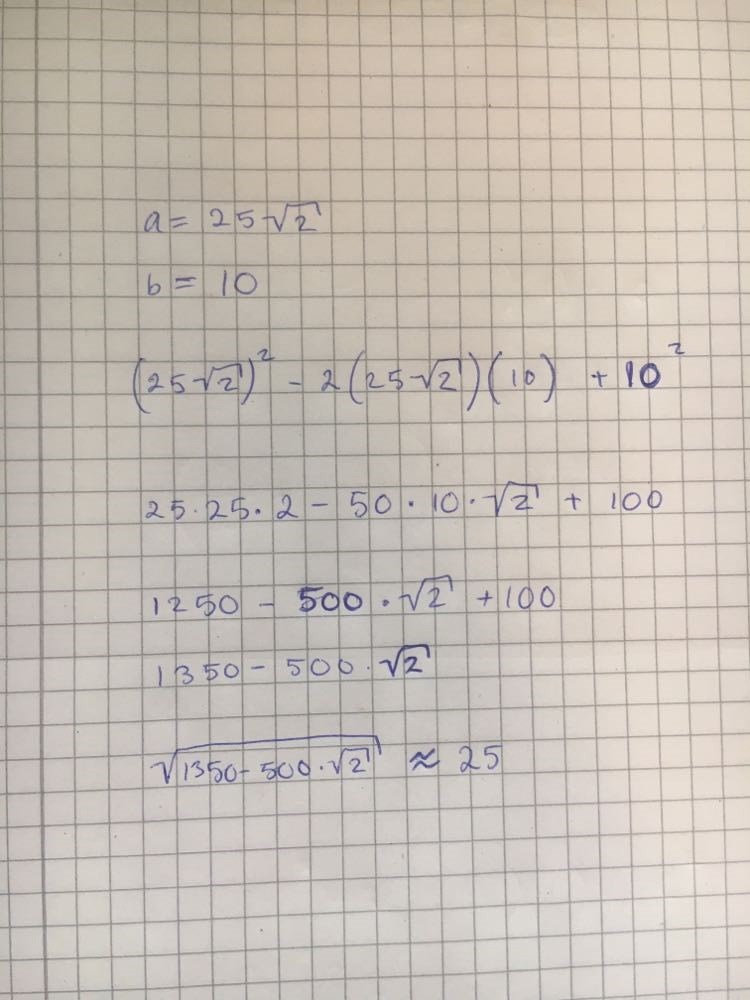 a = 25√2
b = 10
(25√2)² - 2(25√2)(10) + 10²
25·25·2 - 50·10·√2 + 100
1250 - 500·√2 + 100
1350 - 500·√2
√(1350 - 500·√2) ≈ 25